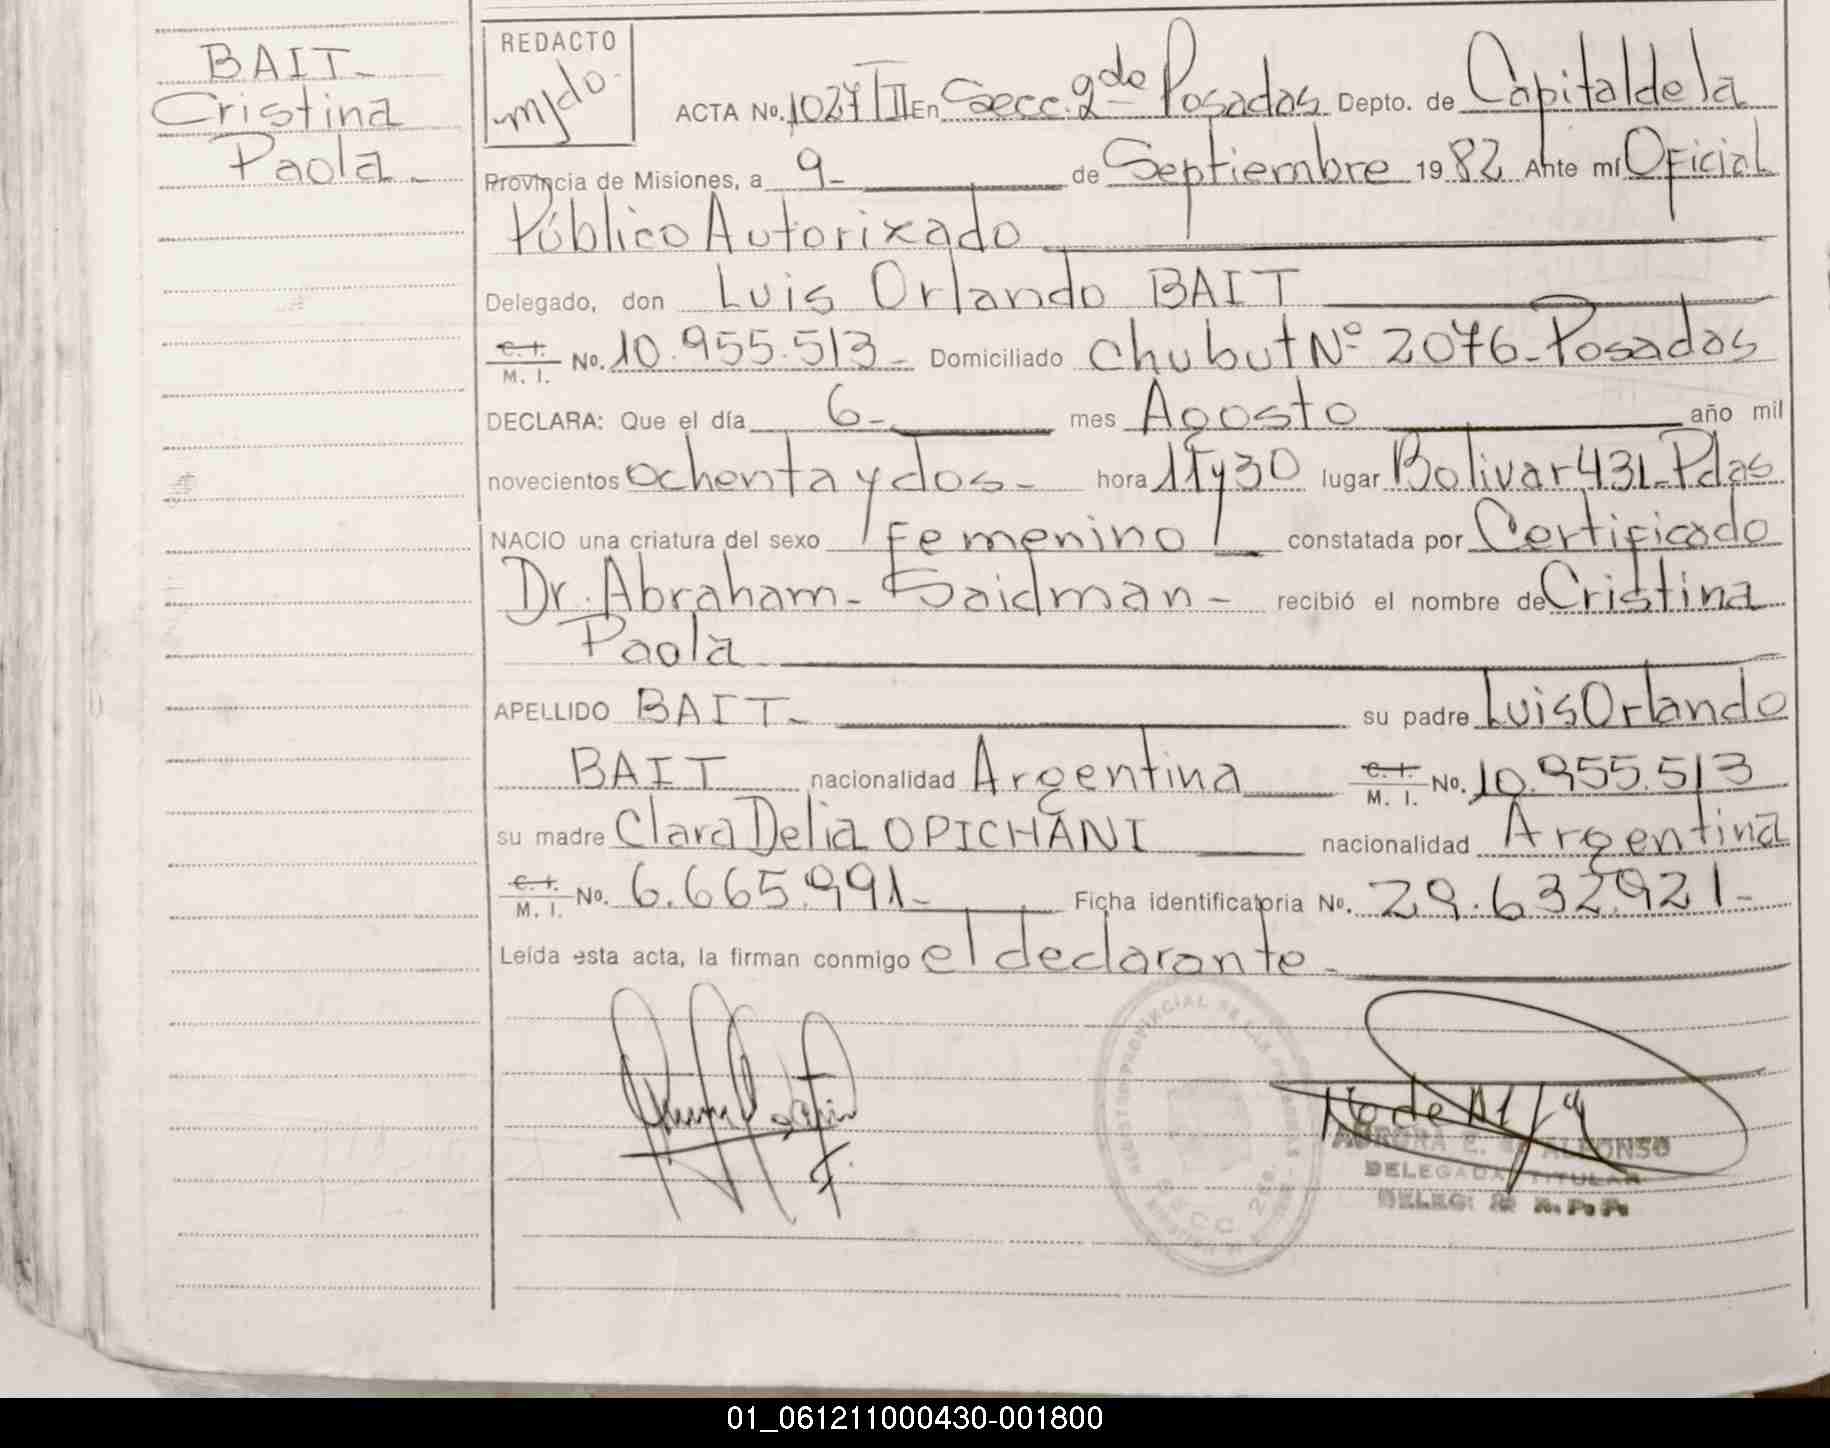 BAIT-
Cristina
Paola-
REDACTO
mjdo.
ACTA No. 1027 TII En Secc. 2da Posadas Depto. de Capital de la
Provincia de Misiones, a 9- de Septiembre 1982 Ante mí Oficial
Público Autorixado
Delegado, don Luis Orlando BAIT
C. I. M. I. No. 10.955.513- Domiciliado Chubut Nº 2076-Posadas
DECLARA: Que el día 6- mes Agosto año mil
novecientos ochenta y dos- hora 11y30 lugar Bolivar 431-Pdas
NACIO una criatura del sexo Femenino constatada por Certificado
Dr. Abraham- Saidman- recibió el nombre de Cristina
Paola
APELLIDO BAIT- su padre Luis Orlando
BAIT nacionalidad Argentina C. I. M. I. No. 10.955.513
su madre Clara Delia OPICHANI nacionalidad Argentina
C. I. M. I. No. 6.665.991- Ficha identificatoria No. 29.632.921-
Leída esta acta, la firman conmigo el declarante-
REGISTRO PROVINCIAL DE LAS PERSONAS
SECC. 2da.
AURORA E. DE ALFONSO
DELEGADA TITULAR
DELEG. R.P.P.
01_061211000430-001800